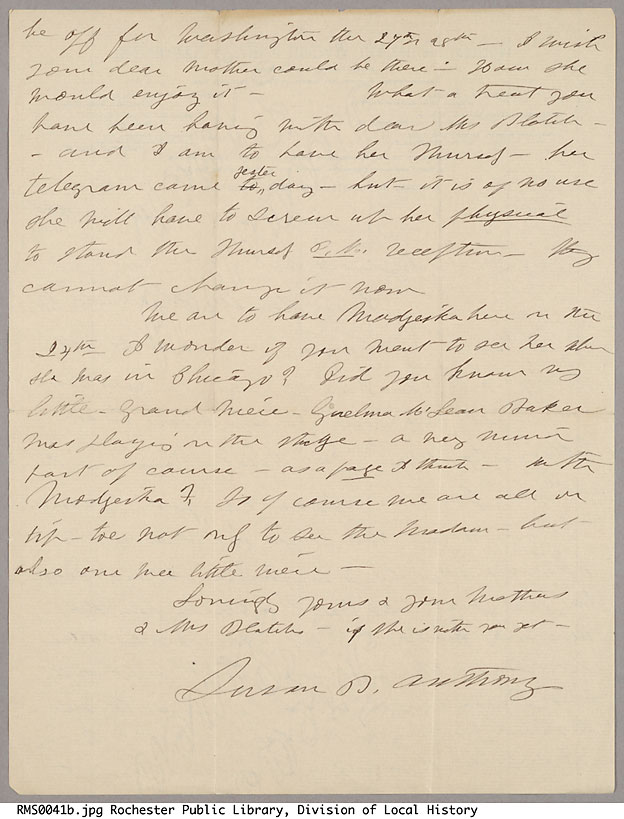 be off for Washington the 27th or 28th - I wish
your dear mother could be there - How she
would enjoy it - What a treat you
have been having with dear Mrs Blatch -
- and I am to have her Thursd - her
telegram came yester to, day - but it is of no use
she will have to screw up her physical
to stand the Thursd P.M. reception - they
cannot change it now
We are to have Modjeska here on the
24th I wonder if you went to see her when
she was in Chicago? Did you know my
little - Grand niece - Guelma McLean Baker
was playing on the stage - a very minor
part of course - as a page I think - with
Modjeska? So of course we are all on
tip-toe not only to see the Madam - but
also our wee little niece -
Lovingly yours & your Mothers
& Mrs Blatchs - if she is with you yet -
Susan B. Anthony
RMS0041b.jpg Rochester Public Library, Division of Local History